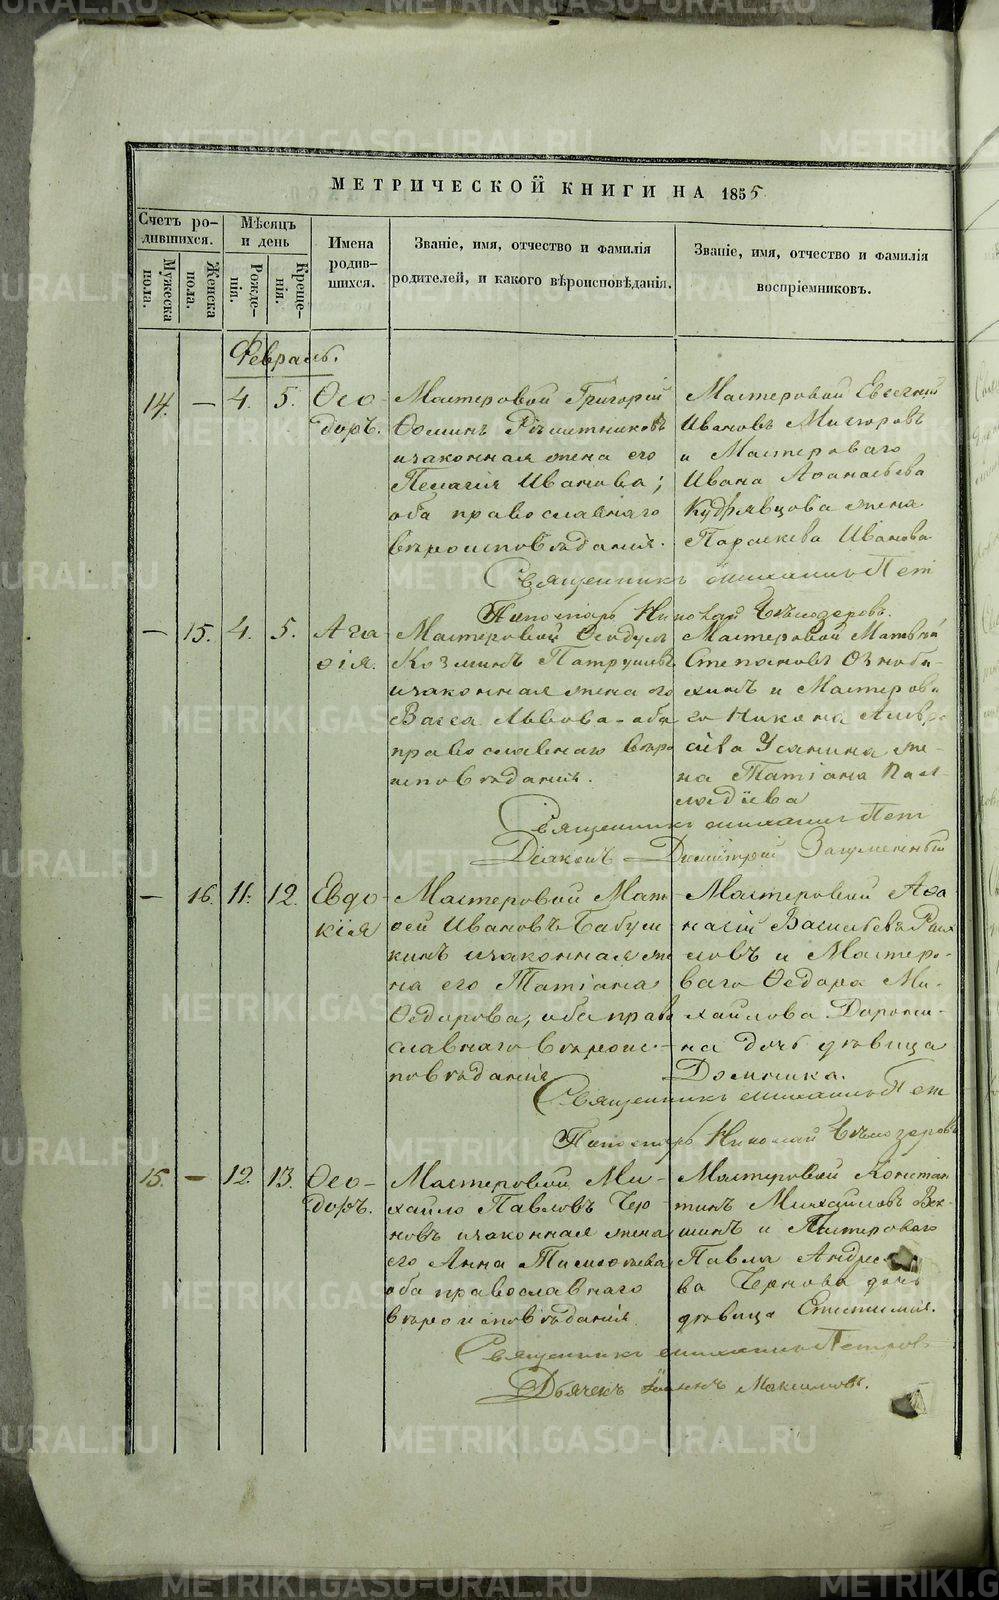 МЕТРИЧЕСКОЙ КНИГИ НА 1855
Счетъ ро-
дившихся.
Мужеска
пола.
Женска
пола.
Мѣсяцъ
и день
Рожде-
нія.
Креще-
нія.
Имена
родив-
шихся.
Званіе, имя, отчество и фамилія
родителей, и какого вѣроисповѣданія.
Званіе, имя, отчество и фамилія
воспріемниковъ.
Февраль.
14. — 4. 5. Ѳео-
доръ.
Мастеровой Григорій
Ѳоминъ Рѣшетниковъ
и законная жена его
Пелагія Иванова;
оба православнаго
вѣроисповѣданія.
Мастеровой Евгеній
Ивановъ
и Мастероваго
Ивана Аѳанасьева
Кудрявцова жена
Параскева Иванова
Священникъ Пет
Пономарь Николай Бѣлозеровъ.
— 15. 4. 5. Ага
ѳія.
Мастеровой Ѳеодулъ
Козминъ Патрушевъ
и законная жена его
Васса Львова - оба
православнаго вѣро
исповѣданія.
Мастеровой Матвѣй
Степановъ Озноби-
хинъ и Мастерова
го Никона Амвро
сіева Усянина же-
на Татіана
Священникъ Пет
Діаконъ Димитрій
— 16. 11. 12. Евдо
кія
Мастеровой Мат
ѳей Ивановъ Бабуш
кинъ и законная же
на его Татіана
Ѳедорова, оба право
славнаго вѣроис-
повѣданія
Мастеровой Аѳа-
насій Васильевъ
ловъ и Мастеро-
ваго Ѳедора Ми-
хайлова
на дочь дѣвица
Домника.
Священникъ Пет
Пономарь Николай Бѣлозеровъ
15. — 12. 13. Ѳео-
доръ.
Мастеровой Ми-
хайло Павловъ Чер
новъ и законная жена
его Анна Тимоѳеева
оба православнаго
вѣроисповѣданія.
Мастеровой Констан
тинъ Михайловъ Век-
шинъ и Мастероваго
Павла Андрее
ва Чернова дочь
дѣвица
Священникъ Петров
Дьячекъ Максимовъ.
METRIKI.GASO-URAL.RU